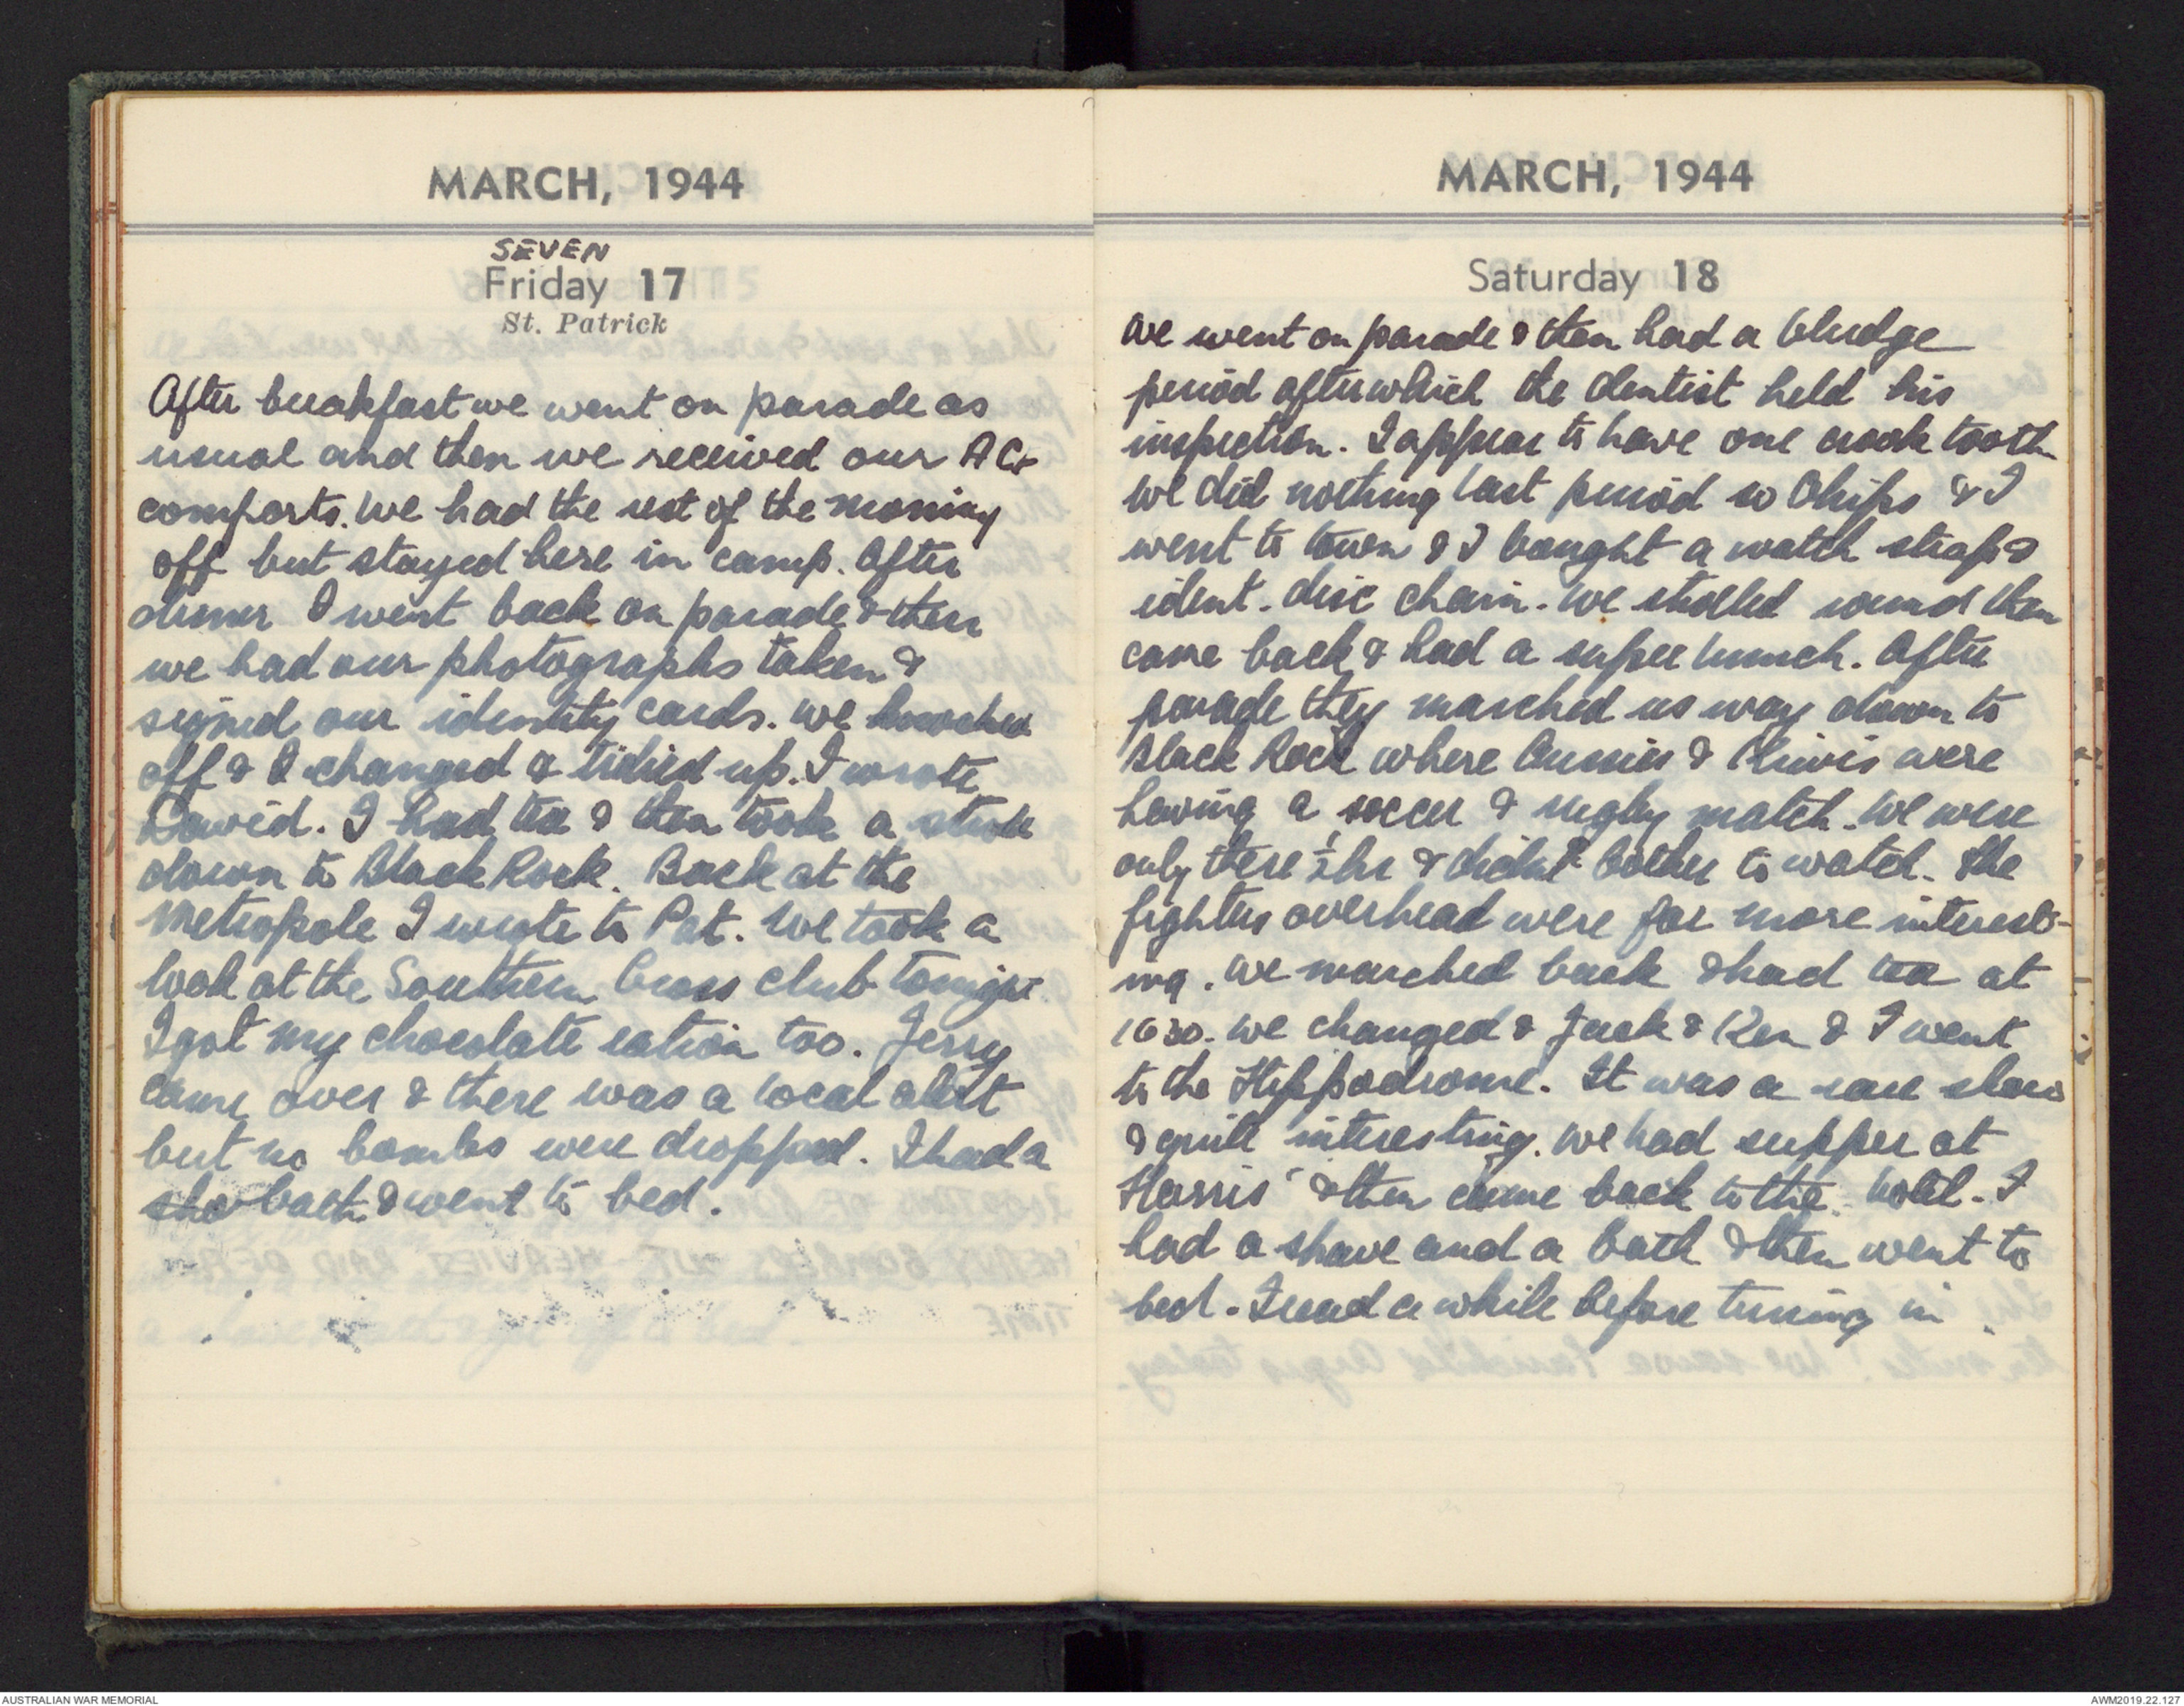 MARCH, 1944
SEVEN
Friday 17
St. Patrick
After breakfast we went on parade as
usual and then we received our AC
comforts. We had the rest of the morning
off but stayed here in camp. After
dinner I went back on parade & then
we had our photographs taken &
signed our identity cards. We knocked
off & I changed & tidied up. I wrote
David. I had tea & then took a stroll
down to Black Rock. Back at the
Metropole I wrote to Pat. We took a
look at the Southern Cross club tonight
I got my chocolate ration too. Jerry
came over & there was a local alert
but no bombs were dropped. I had a
bath & went to bed.
MARCH, 1944
Saturday 18
We went on parade & then had a bludge
period after which the dentist held his
inspection. I appear to have one crook tooth
We did nothing last period so Chips & I
went to town & I bought a watch strap &
ident. disc chain. We strolled round then
came back & had a super lunch. After
parade they marched us way down to
Black Rock where Aussies & Kiwis were
having a soccer & rugby match. We were
only there ½ hr & didn't bother to watch. The
fighters overhead were far more interest-
ing. We marched back & had tea at
1630. We changed & Jack & Ken & I went
to the Hippodrome. It was a rare show
& quite interesting. We had supper at
Harris' & then came back to the hotel. I
had a shave and a bath & then went to
bed. I read a while before turning in.
AUSTRALIAN WAR MEMORIAL
AWM2019.22.127